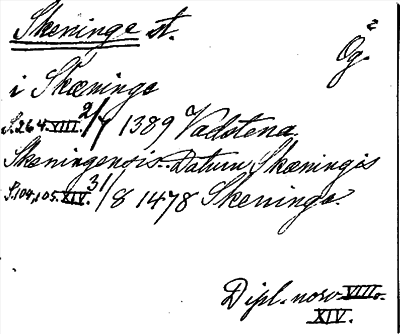 Skeninge st.
2
Ög.
i Skæninge
S. 264. VIII. 2/7 1389 Vadstena.
Skeningensis. Datum Skæningis
S. 104, 105. XIV. 31/8 1478 Skeninge.
Dipl. norv. VIII.
XIV.